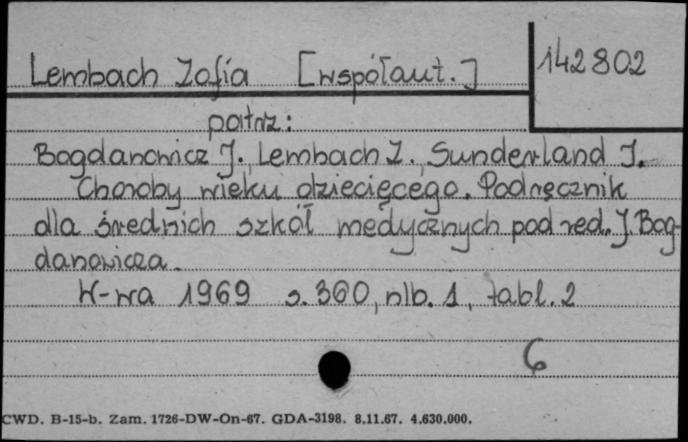 Lembach Zofia [współaut.]
142802
patrz:
Bogdanowicz J., Lembach Z., Sunderland J.
Choroby wieku dziecięcego. Podręcznik
dla średnich szkół medycznych pod red. J. Bog-
danowicza.
W-wa 1969 s. 360, nlb. 1, tabl. 2
6
CWD. B-15-b. Zam. 1726-DW-On-67. GDA-3198. 8.11.67. 4.630.000.